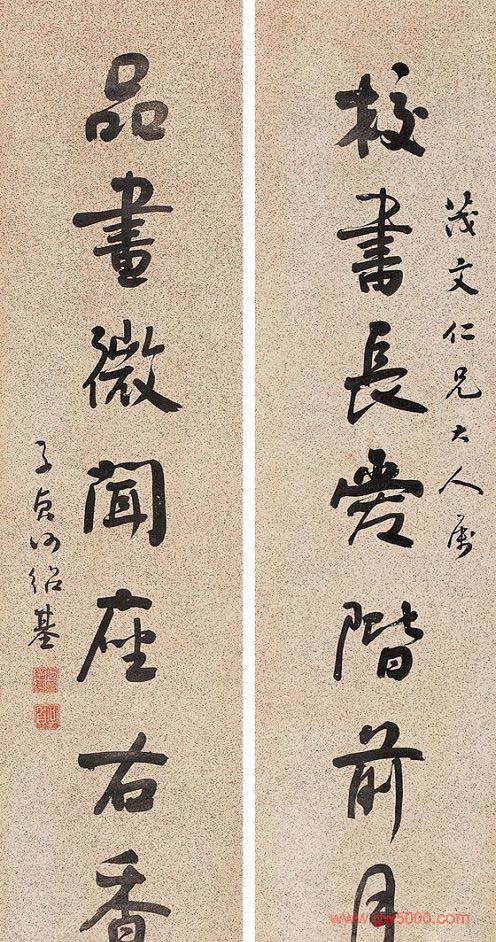 茂文仁兄大人属
校書長愛階前月
品畫微聞座右香
子貞何紹基
www.gw5000.com